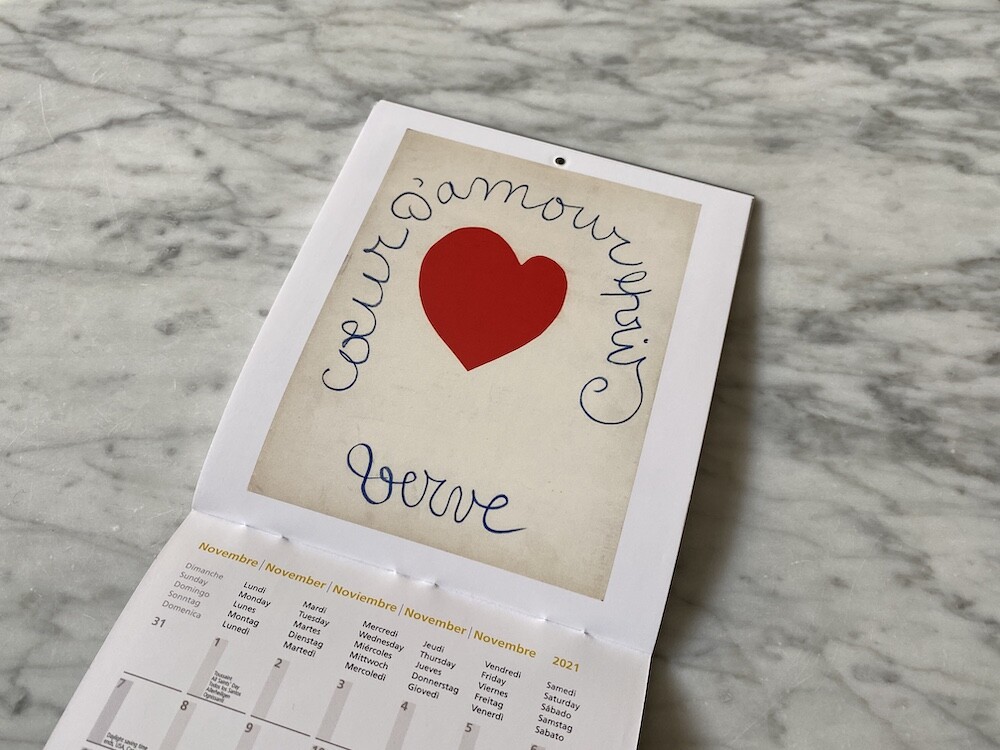 cœur d'amour épris
verve
Novembre | November | Noviembre | November | Novembre 2021
Dimanche
Sunday
Domingo
Sonntag
Domenica
Lundi
Monday
Lunes
Montag
Lunedì
Mardi
Tuesday
Martes
Dienstag
Martedì
Mercredi
Wednesday
Miércoles
Mittwoch
Mercoledì
Jeudi
Thursday
Jueves
Donnerstag
Giovedì
Vendredi
Friday
Viernes
Freitag
Venerdì
Samedi
Saturday
Sábado
Samstag
Sabato
31
1
Toussaint
All Saints' Day
Todos los Santos
Allerheiligen
Ognissanti
2
3
4
5
6
7
Daylight saving time
ends, USA,
8
9
10